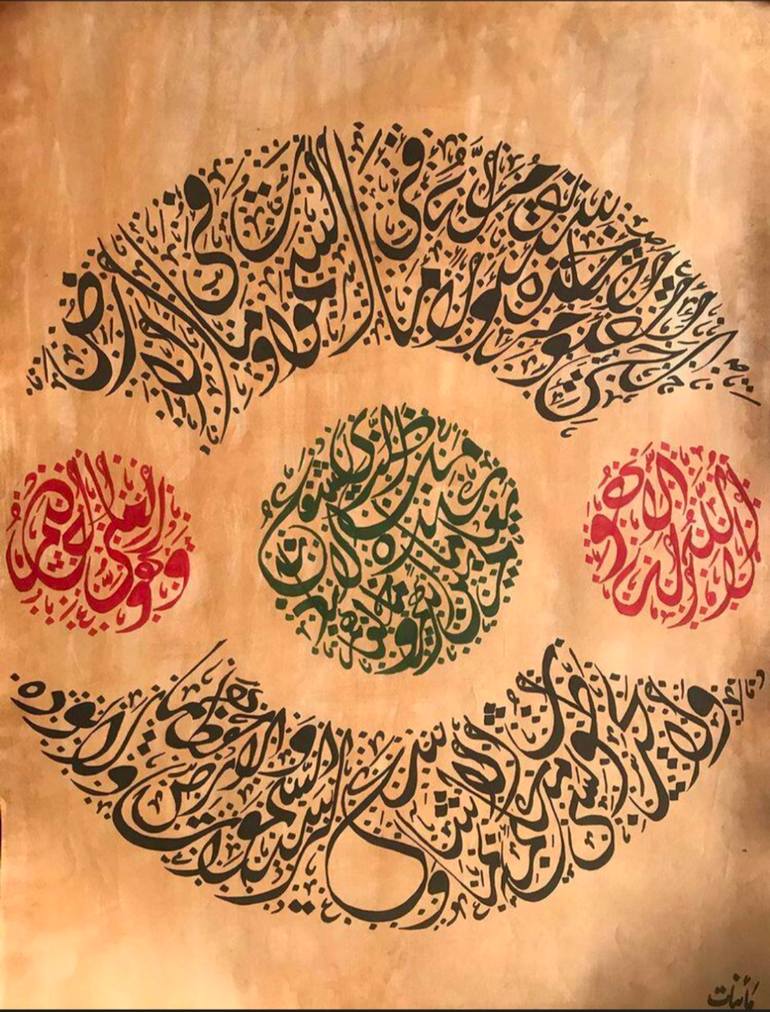 الله لا إله إلا هو
الحي القيوم لا تأخذه سنة ولا نوم له ما في السموات وما في الأرض
من ذا الذي يشفع عنده إلا بإذنه يعلم ما بين أيديهم وما خلفهم
ولا يحيطون بشيء من علمه إلا بما شاء وسع كرسيه السموات والأرض ولا يؤده حفظهما
وهو العلي العظيم